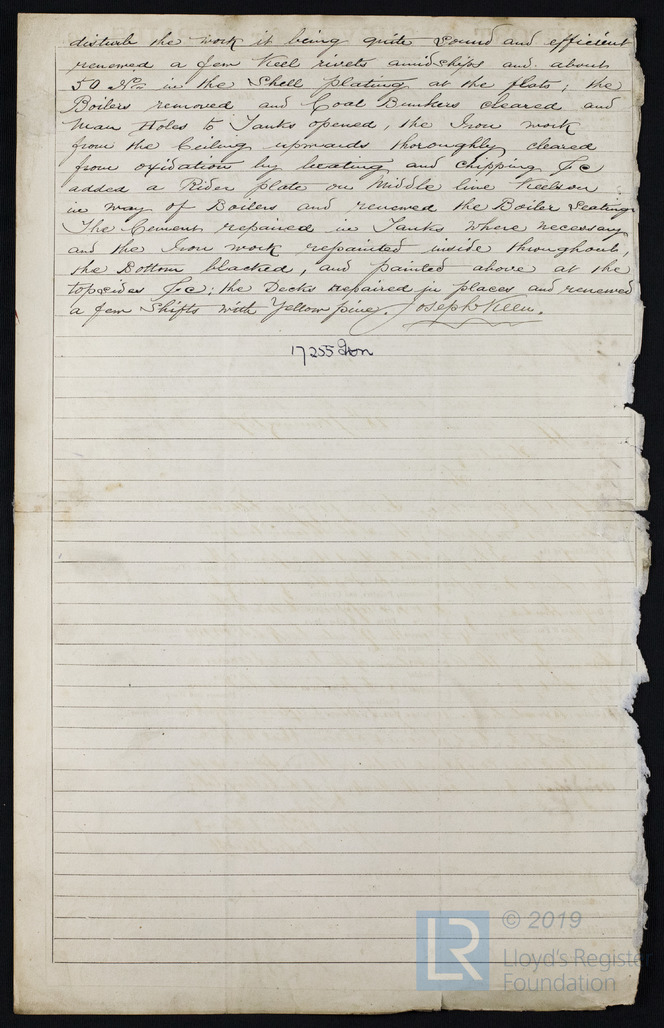 disturb the work it being quite sound and efficient
renewed a few Keel rivets amidships and about
50 Nos in the Shell plating at the flats; the
Boilers removed and Coal Bunkers cleared and
Man Holes to Tanks opened, the Iron work
from the Ceiling upwards thoroughly cleared
from oxidation by beating and chipping &c
added a Rider plate on Middle line Keelson
in way of Boilers and renewed the Boiler Seating
The Cement repaired in Tanks where necessary
and the Iron work repainted inside throughout,
the Bottom blacked, and painted above at the
topsides &c; the Decks repaired in places and renewed
a few Shifts with Yellow pine. Joseph Keen.
17255 Iron
LR © 2019
Lloyd's Register
Foundation